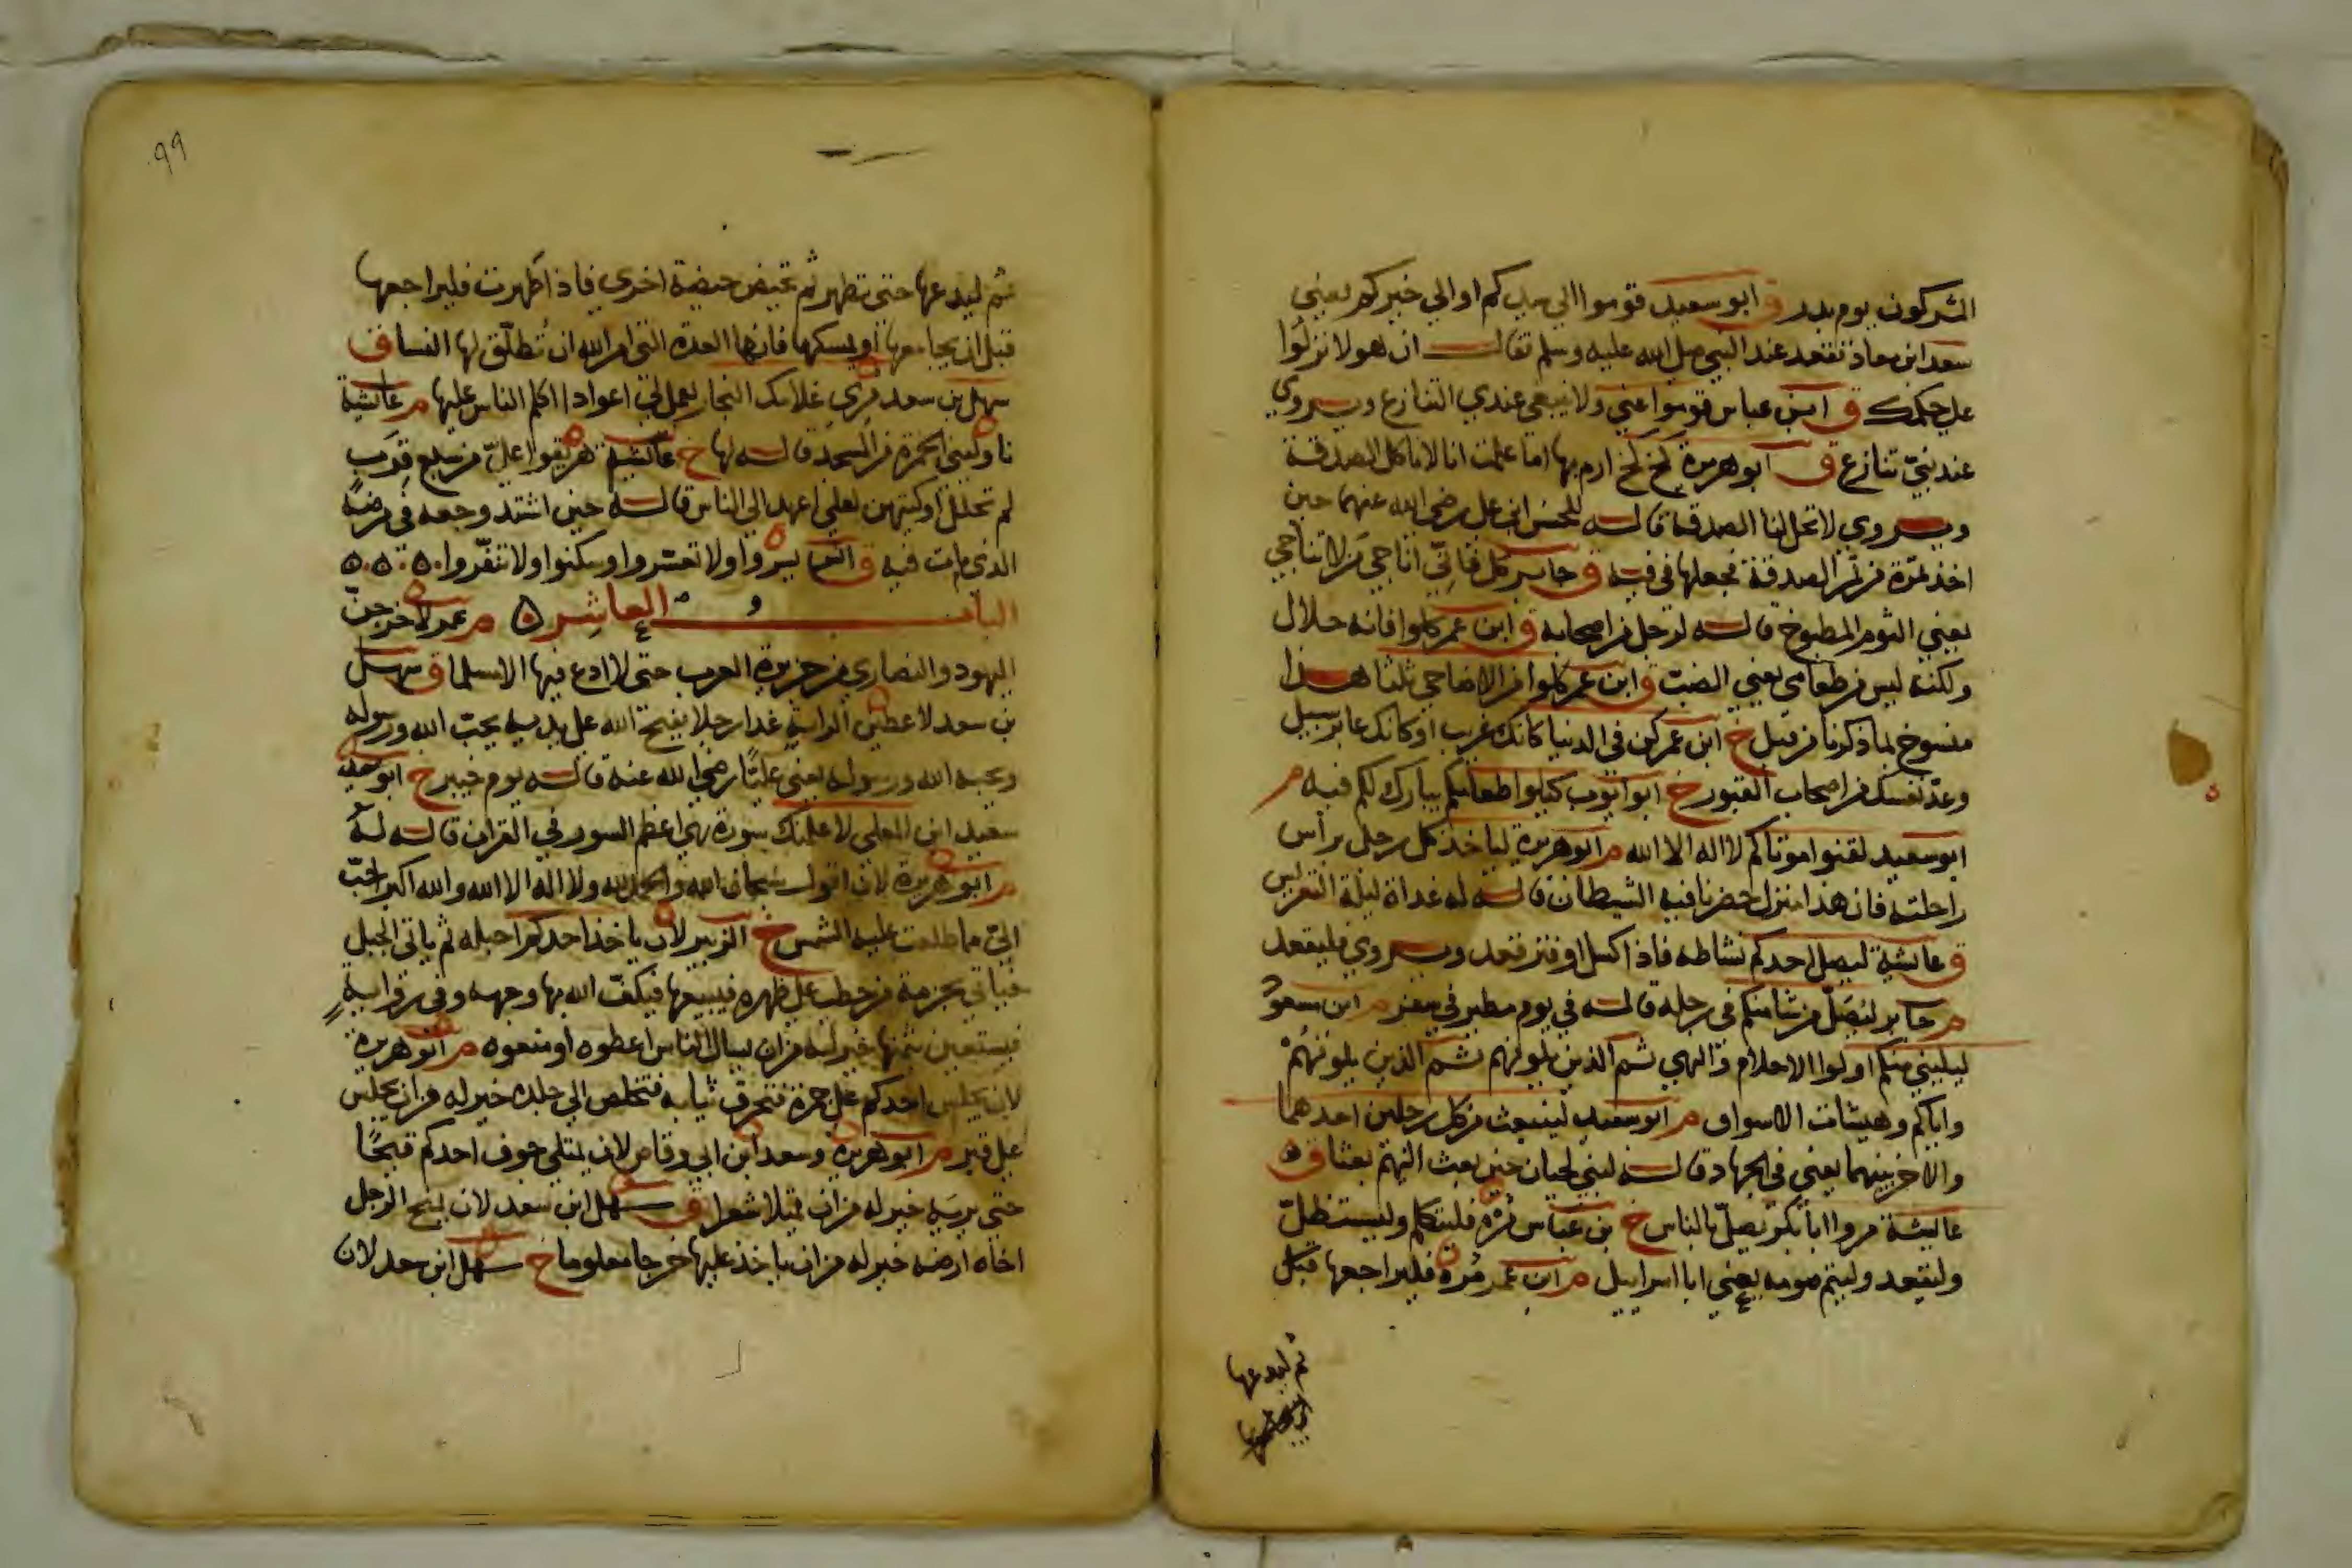 المشركون يوم بدر ق ابو سعيد قوموا الي سيدكم او الي خيركم يعني
سعد ابن معاذ فقعد عند النبي صلي الله عليه وسلم فقال ان هولا نزلوا
علي حكمك ق ابن عباس قوموا عني ولا ينبغي عندي التنازع ويروي
عند نبيّ تنازع ق ابو هريرة كخ كخ ارم بها اما علمت انا لا ناكل الصدقة
ويروي لا تحل لنا الصدقة قاله للحسن ابن علي رضي الله عنهما حين
اخذ تمرة من تمر الصدقة فجعلها في فيه ق جابر كل فاني اناجي من لا تناجي
يعني الثوم المطبوخ قاله لرجل من اصحابه ق ابن عمر كلوا فانه حلال
ولكنه ليس من طعامي يعني الضب ق ابن عمر كلوا من الاضاحي ثلثا هذا
منسوخ بما ذكرنا من قبل خ ابن عمر كن في الدنيا كانك غريب او كانك عابر سبيل
وعدّ نفسك من اصحاب القبور خ ابو ايوب كيلوا طعامكم يبارك لكم فيه م
ابو سعيد لقنوا موتاكم لا اله الا الله م ابو هريرة لياخذ كل رجل براس
راحلته فان هذا منزل حضرنا فيه الشيطان قاله له غداة ليلة التعريس
ق عايشة ليصل احدكم نشاطه فاذا كسل او فتر قعد ويروي فليقعد
م جابر ليصلّ من شا منكم في رحله قاله في يوم مطير في سفر م ابن مسعود
ليليني منكم اولوا الاحلام والنهي ثم الذين يلونهم ثم الذين يلونهم
واياكم وهيشات الاسواق م ابو سعيد لينبعث من كل رجلين احدهما
والاخر بينهما يعني في الجهاد قاله لبني لحيان حين بعث اليهم بعثا ق
عايشة مروا ابا بكر يصلّ بالناس خ بن عباس مره فليتكلم وليستظلّ
وليقعد وليتم صومه يعني ابا اسراييل م ابن عمر مره فليراجعها قبل
ثم ليدعها
٩٩
ثم ليدعها حتي تطهر ثم تحيض حيضة اخري فاذا طهرت فليراجعها
قبل ان يجامعها او يمسكها فانها العدة التي امر الله ان تُطلّق لها النسا ق
سهل بن سعد مري غلامك النجار يعمل لي اعوادا اكلم الناس عليها م عايشة
ناوليني الخمرة من المسجد قاله لها خ عايشة هريقوا عليّ من سبع قرب
لم تحلل اوكيتهن لعلي اعهد الي الناس قاله حين اشتد وجعه في مرضه
الذي مات فيه ق انس يسروا ولا تعسروا وسكنوا ولا تنفّروا
الباب العاشر م عمر لاخرجنّ
اليهود والنصاري من جزيرة العرب حتي لا ادع فيها الا مسلما ق سهل
بن سعد لاعطين الراية غدا رجلا يفتح الله علي يديه يحبّ الله ورسوله
ويحبه الله ورسوله يعني عليّا رضي الله عنه قاله يوم خيبر خ ابو سعيد
سعيد ابن المعلي لاعلمنك سورة هي اعظم السور في القران قاله له
م ابو هريرة لان اقول سبحان الله والحمد لله ولا اله الا الله والله اكبر احبّ
الي مما طلعت عليه الشمس خ الزبير لان ياخذ احدكم احبله ثم ياتي الجبل
فياتي بحزمة من حطب علي ظهره فيبيعها فيكفّ الله بها وجهه وفي رواية
فيستعين بثمنها خير له من ان يسال الناس اعطوه او منعوه م ابو هريرة
لان يجلس احدكم علي جمرة فتحرق ثيابه فتخلص الي جلده خير له من ان يجلس
علي قبر م ابو هريرة وسعد ابن ابي وقاص لان يمتلي جوف احدكم قيحًا
حتي يريه خير له من ان يمتلا شعرا ق سهل ابن سعد لان يمنح الرجل
اخاه ارضه خير له من ان ياخذ عليها خرجا معلوما خ سهل ابن سعد لان